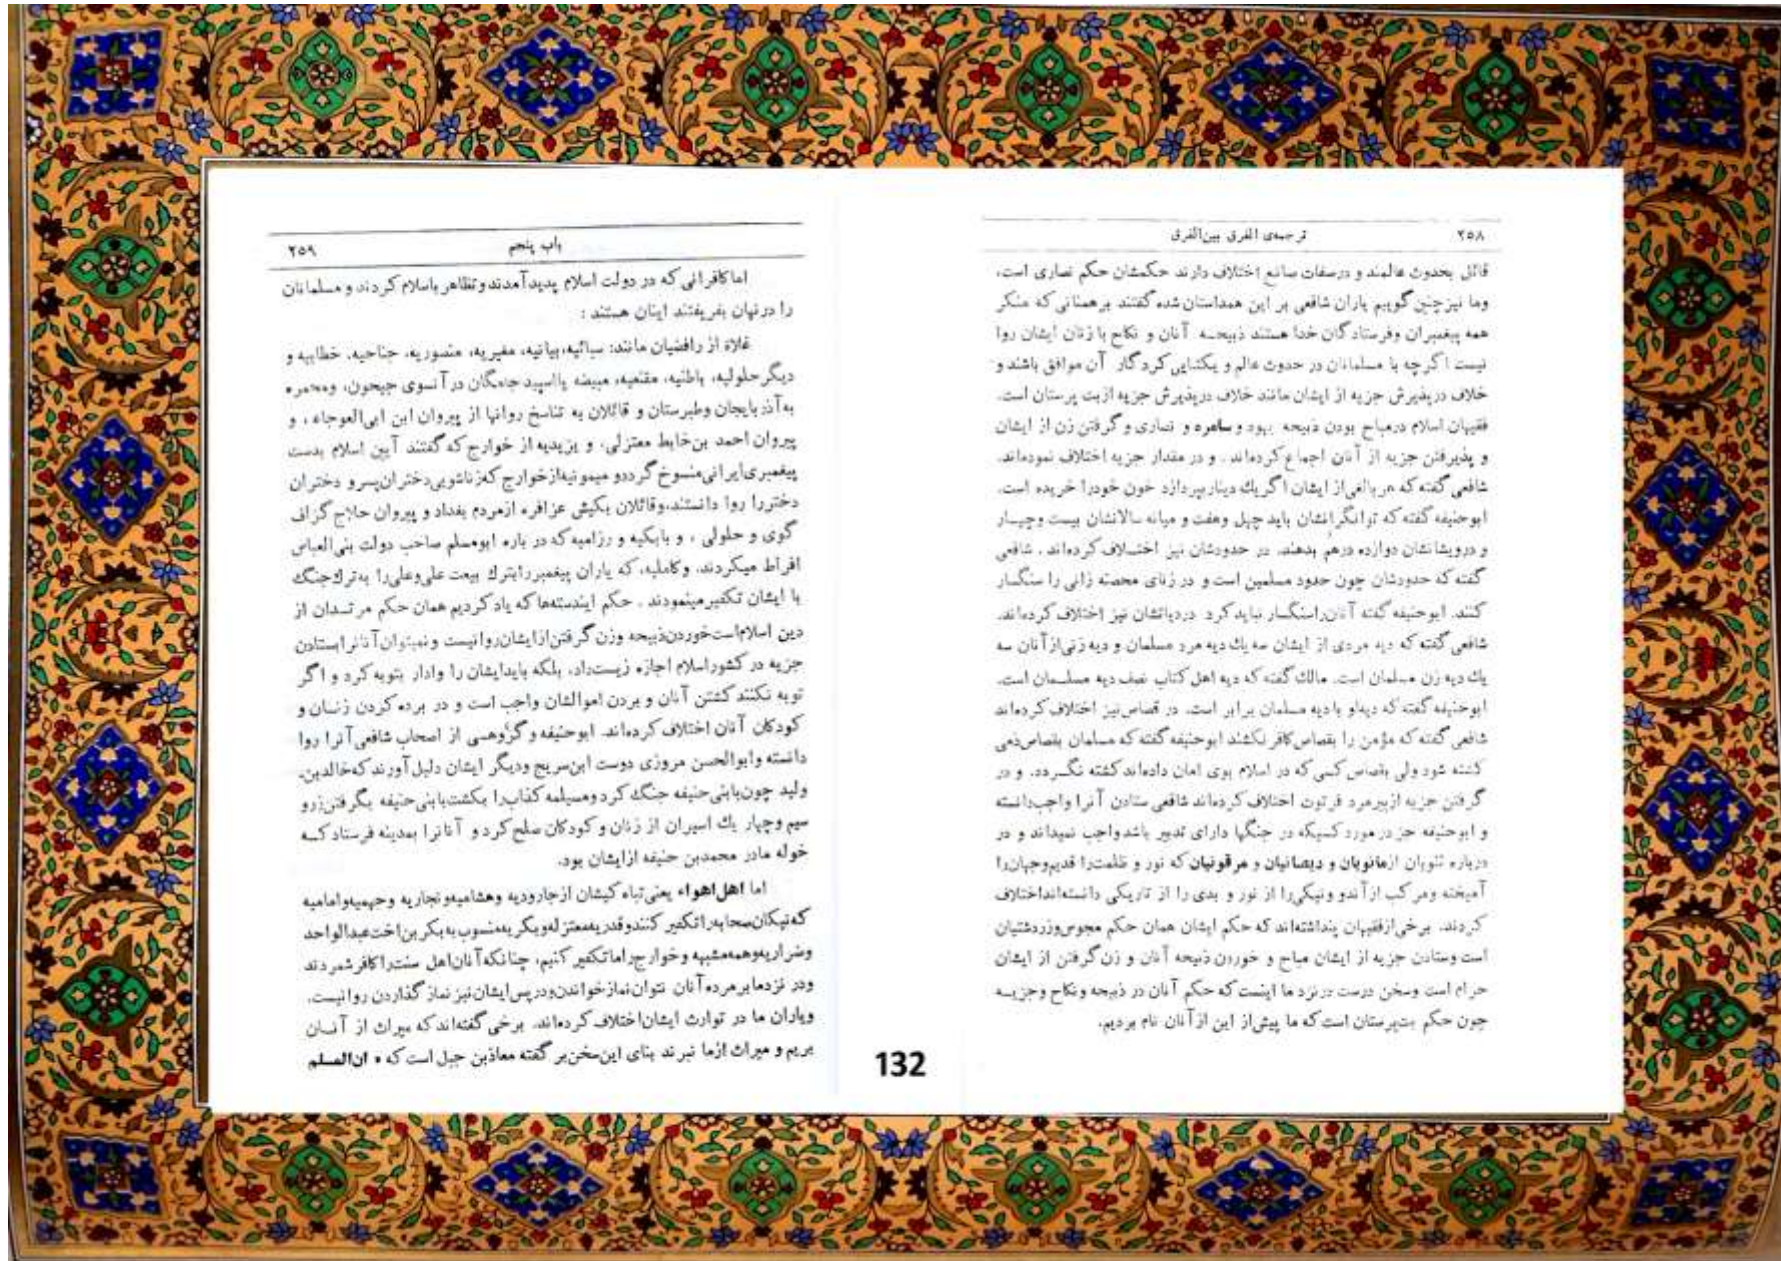 ۲۵۸ ترجمه‌ی الفرق بین‌الفرق
قائل بحدوث عالمند و درصفات صانع اختلاف دارند حکمشان حکم نصاری است،
وما نیز چنین گوییم یاران شافعی بر این همداستان شده گفتند برهمنانی که منکر
همه پیغمبران وفرستادگان خدا هستند ذبیحه آنان و نکاح با زنان ایشان روا
نیست اگرچه با مسلمانان در حدوث عالم و یکتایی کردگار آن موافق باشند و
خلاف درپذیرش جزیه از ایشان مانند خلاف درپذیرش جزیه ازبت پرستان است.
فقیهان اسلام درمباح بودن ذبیحه یهود و سامره و نصاری و گرفتن زن از ایشان
و پذیرفتن جزیه از آنان اجماع کرده‌اند. و در مقدار جزیه اختلاف نموده‌اند.
شافعی گفته که هر بالغی از ایشان اگر یك دینار بپردازد خون خودرا خریده است.
ابوحنیفه گفته که توانگرانشان باید چهل وهفت و میانه سالانشان بیست وچهار
و درویشانشان دوازده درهم بدهند. در حدودشان نیز اختلاف کرده‌اند. شافعی
گفته که حدودشان چون حدود مسلمین است و در زنای محصنه زانی را سنگسار
کنند. ابوحنیفه گفته آنان‌را سنگسار نباید کرد. دردیاتشان نیز اختلاف کرده‌اند.
شافعی گفته که دیه مردی از ایشان سه یك دیه مرد مسلمان و دیه زنی از آنان سه
یك دیه زن مسلمان است. مالك گفته که دیه اهل کتاب نصف دیه مسلمان است.
ابوحنیفه گفته که دیه‌او بادیه مسلمان برابر است. در قصاص نیز اختلاف کرده‌اند
شافعی گفته که مؤمن را بقصاص کافر نکشند ابوحنیفه گفته که مسلمان بقصاص ذمی
کشته شود ولی بقصاص کسی که در اسلام بوی امان داده‌اند کشته نگردد. و در
گرفتن جزیه ازپیرمرد فرتوت اختلاف کرده‌اند شافعی ستادن آنرا واجب‌دانسته
و ابوحنیفه جز در مورد کسیکه در جنگها دارای تدبیر باشد واجب نمیداند و در
درباره ثنویان ازمانویان و دیصانیان و مرقونیان که نور و ظلمت‌را قدیم‌وجهان‌را
آمیخته ومرکب ازآندو ونیکی‌را از نور و بدی را از تاریکی دانسته‌انداختلاف
کردند. برخی ازفقیهان پنداشته‌اند که حکم ایشان همان حکم مجوس‌وزردشتیان
است وستادن جزیه از ایشان مباح و خوردن ذبیحه آنان و زن گرفتن از ایشان
حرام است وسخن درست درنزد ما اینست که حکم آنان در ذبیحه ونکاح وجزیه
چون حکم بت‌پرستان است که ما پیش از این ازآنان نام بردیم.
باب پنجم ۲۵۹
اما کافرانی که در دولت اسلام پدیدآمدند وتظاهر باسلام کردند و مسلمانان
را درنهان بفریفتند اینان هستند :
غلاة از رافضیان مانند: سبائیه، بیانیه، مغیریه، منصوریه، جناحیه، خطابیه و
دیگر حلولیه، باطنیه، مقنعیه، مبیضه یااسپید جامگان درآنسوی جیحون، ومحمره
به‌آذربایجان وطبرستان و قائلان به تناسخ روانها از پیروان ابن ابی‌العوجاء، و
پیروان احمد بن‌خابط معتزلی، و یزیدیه از خوارج که گفتند آیین اسلام بدست
پیغمبری‌ایرانی‌منسوخ گردد و میمونیه‌ازخوارج که‌زناشویی‌دختران‌پسر و دختران
دختررا روا دانستند، وقائلان بکیش عزافره ازمردم بغداد و پیروان حلاج گزاف
گوی و حلولی ، و بابکیه و رزامیه که در باره ابومسلم صاحب دولت بنی‌العباس
افراط میکردند، وکاملیه، که یاران پیغمبررابترك بیعت علی‌وعلی‌را به‌ترك‌جنگ
با ایشان تکفیر مینمودند. حکم ایندسته‌ها که یاد کردیم همان حکم مرتدان از
دین اسلام‌است‌خوردن‌ذبیحه وزن گرفتن‌ازایشان‌روانیست ونمیتوان‌آنانراباستادن
جزیه در کشوراسلام اجازه زیست‌داد، بلکه بایدایشان را وادار بتوبه کرد و اگر
توبه نکنند کشتن آنان و بردن اموالشان واجب است و در برده کردن زنان و
کودکان آنان اختلاف کرده‌اند. ابوحنیفه و گروهی از اصحاب شافعی آنرا روا
دانسته وابوالحسن مروزی دوست ابن‌سریج ودیگر ایشان دلیل آورند که‌خالدبن‌
ولید چون‌بابنی‌حنیفه جنگ کرد ومسیلمه کذاب‌را بکشت‌بابنی‌حنیفه بگرفتن‌زرو
سیم وچهار یك اسیران از زنان و کودکان صلح کرد و آنانرا بمدینه فرستاد که
خوله مادر محمدبن حنیفه ازایشان بود.
اما اهل‌اهواء یعنی تباه کیشان ازجارودیه وهشامیه‌ونجاریه وجهمیه‌وامامیه
که‌نیکان‌صحابه‌راتکفیر کنندوقدریه‌معتزله‌وبکریه‌منسوب‌به‌بکربن‌اخت‌عبدالواحد
وضراریه‌وهمه‌مشبهه وخوارج‌راماتکفیر کنیم، چنانکه‌آنان‌اهل سنت‌راکافر شمردند
ودر نزدما بر مرده‌آنان نتوان‌نمازخواندن‌ودرپس‌ایشان‌نیز نماز گذاردن روانیست.
ویاران ما در توارث ایشان‌اختلاف کرده‌اند. برخی گفته‌اند که میراث از آنان
بریم و میراث ازما نبرند بنای این‌سخن‌بر گفته معاذبن جبل است که « ان‌المسلم
132